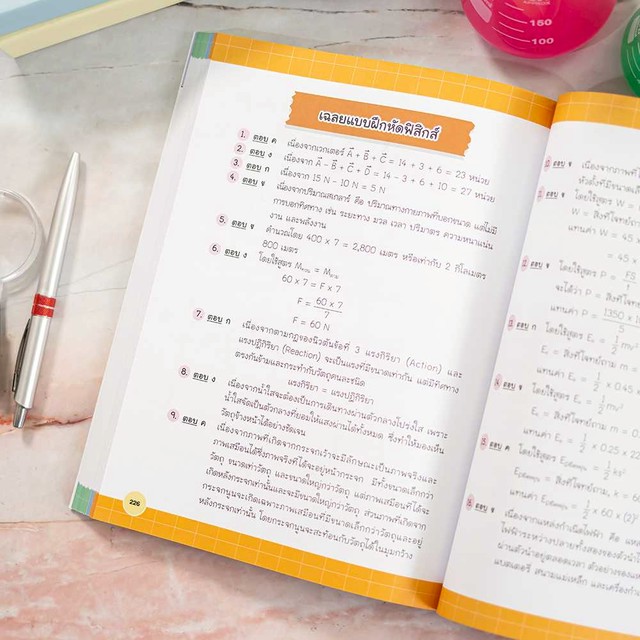 150
100
เฉลยแบบฝึกหัดฟิสิกส์
1. ตอบ ค เนื่องจากเวกเตอร์ A + B + C = 14 + 3 + 6 = 23 หน่วย
2. ตอบ ง เนื่องจาก A - B + C + D = 14 - 3 + 6 + 10 = 27 หน่วย
3. ตอบ ก เนื่องจาก 15 N - 10 N = 5 N
4. ตอบ ข เนื่องจากปริมาณสเกลาร์ คือ ปริมาณทางกายภาพที่บอกขนาด แต่ไม่มี
การบอกทิศทาง เช่น ระยะทาง มวล เวลา ปริมาตร ความหนาแน่น
งาน และพลังงาน
5. ตอบ ข คำนวณโดย 400 x 7 = 2,800 เมตร หรือเท่ากับ 2 กิโลเมตร
800 เมตร
6. ตอบ ง โดยใช้สูตร
60 x 7 = F x 7
F = 60 x 7
7
F = 60 N
7. ตอบ ก เนื่องจากตามกฎของนิวตันข้อที่ 3 แรงกิริยา (Action) และ
แรงปฏิกิริยา (Reaction) จะเป็นแรงที่มีขนาดเท่ากัน แต่มีทิศทาง
ตรงกันข้ามและกระทำกับวัตถุคนละชนิด
แรงกิริยา = แรงปฏิกิริยา
8. ตอบ ง เนื่องจากน้ำใสจะต้องเป็นการเดินทางผ่านตัวกลางโปร่งใส เพราะ
น้ำใสจัดเป็นตัวกลางที่ยอมให้แสงผ่านได้ทั้งหมด ซึ่งทำให้มองเห็น
วัตถุข้างหน้าได้อย่างชัดเจน
9. ตอบ ค เนื่องจากภาพที่เกิดจากกระจกเว้าจะมีลักษณะเป็นภาพจริงและ
ภาพเสมือนได้ซึ่งภาพจริงที่ได้จะอยู่หน้ากระจก มีทั้งขนาดเล็กกว่า
วัตถุ ขนาดเท่าวัตถุ และขนาดใหญ่กว่าวัตถุ แต่ภาพเสมือนที่ได้จะ
เกิดหลังกระจกเท่านั้นและจะมีขนาดใหญ่กว่าวัตถุ ส่วนภาพที่เกิดจาก
กระจกนูนจะเกิดเฉพาะภาพเสมือนที่มีขนาดเล็กกว่าวัตถุและอยู่
หลังกระจกเท่านั้น โดยกระจกนูนจะสะท้อนกับวัตถุได้ในมุมกว้าง
226
เนื่องจากภาพที่
หัวตั้งที่มีขนาด
ตอบ ข โดยใช้สูตร W =
W = สิ่งที่โจทย์
แทนค่า W = 45
= 45 x
ตอบ ข โดยใช้สูตร P =
จะได้ว่า P =
แทนค่า P = 1350 x
5
ตอบ ก โดยใช้สูตร
สิ่งที่โจทย์ถาม
แทนค่า
x 0.45 x
โดยใช้สูตร
สิ่งที่โจทย์ถาม
แทนค่า
x 0.25 x 22
ตอบ ค โดยใช้สูตร
สิ่งที่โจทย์ถาม
แทนค่า
x 60 x (2)
เนื่องจากแหล่งกำเนิดไฟฟ้า คือ แหล่
ไฟฟ้าระหว่างปลายทั้งสองของตัวนำ
ผ่านตัวนำอยู่ตลอดเวลา ตัวอย่างของแ
แบตเตอรี่ สนามแม่เหล็ก และเครื่องกำ